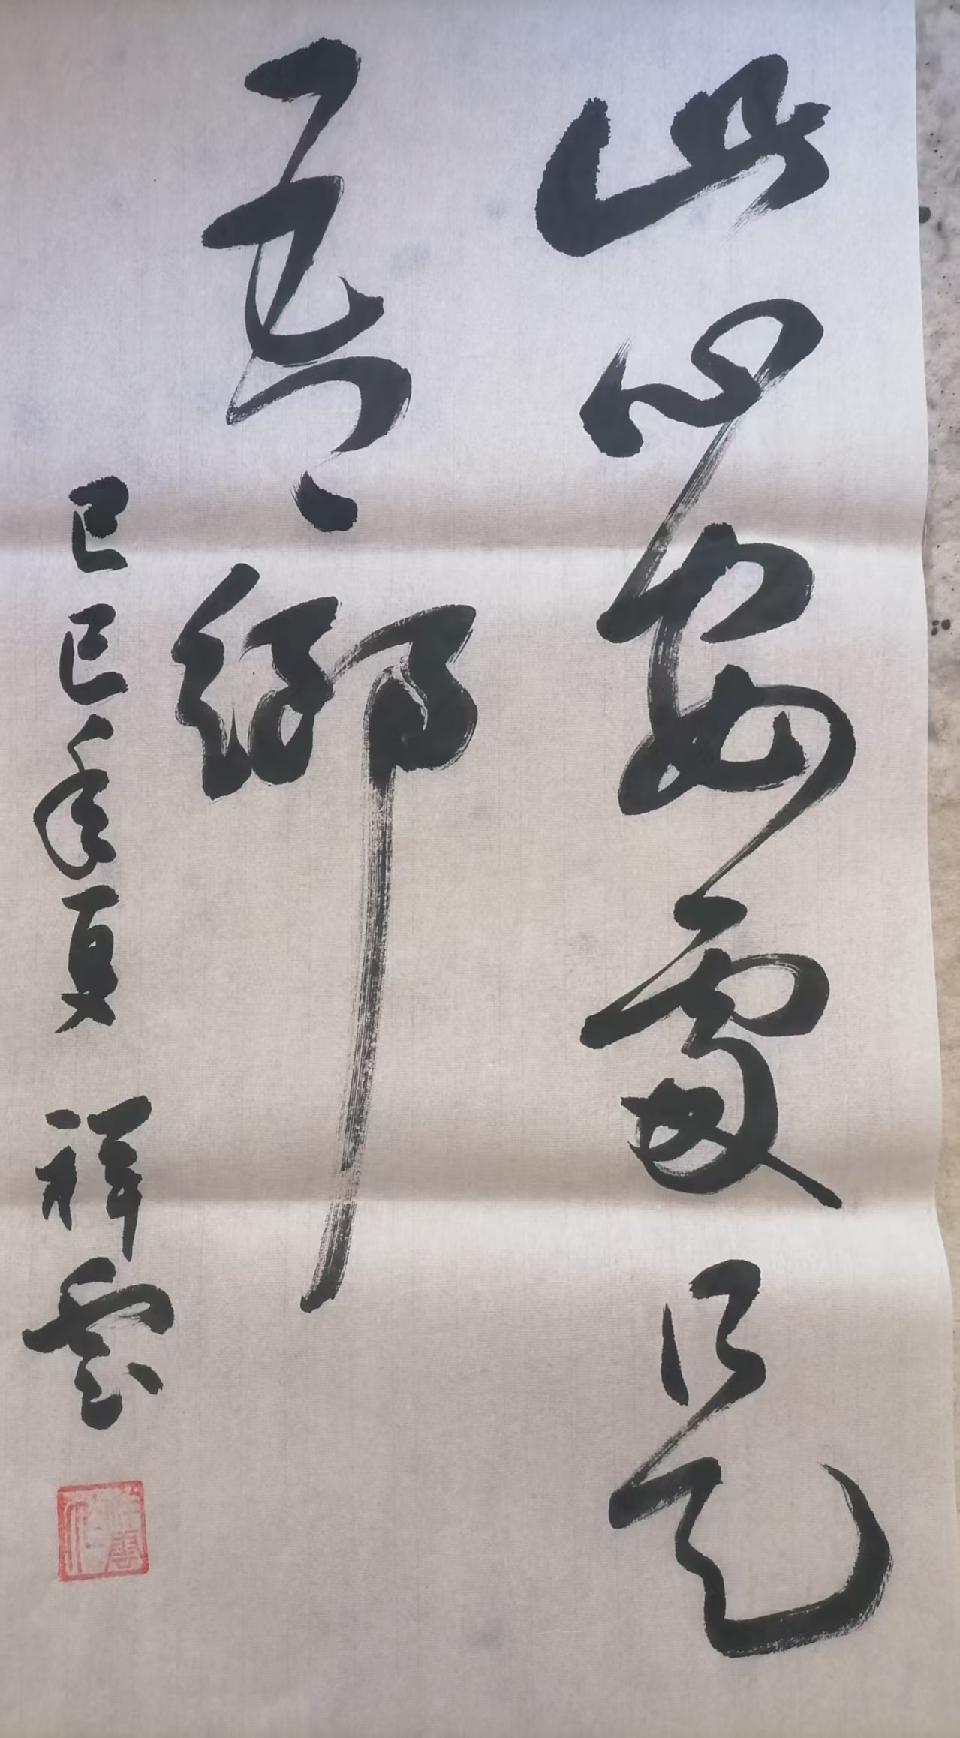 此心安處是
吾鄉
乙巳年夏 祥雲